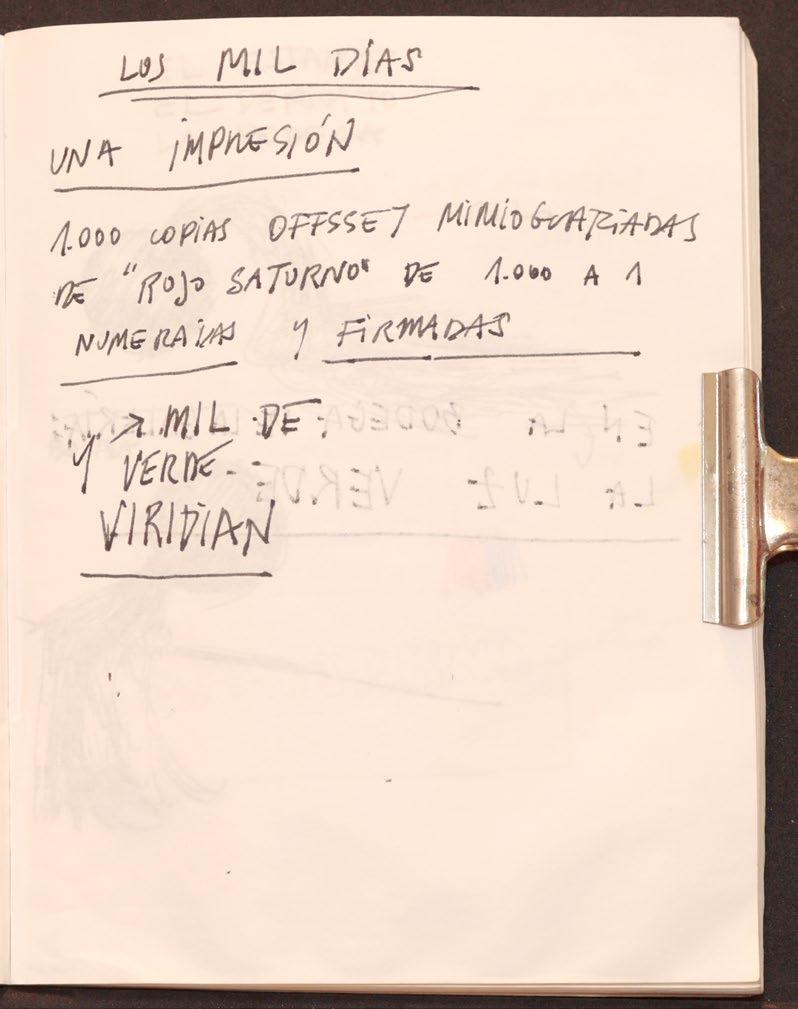 LOS MIL DÍAS
UNA IMPRESIÓN
1.000 COPIAS OFFSSET MIMIOGRAFIADAS
DE "ROJO SATURNO" DE 1.000 A 1
NUMERADAS Y FIRMADAS
Y MIL DE
VERDE-
VIRIDIAN
EN LA BODEGA DE LA
LA LUZ VERDE